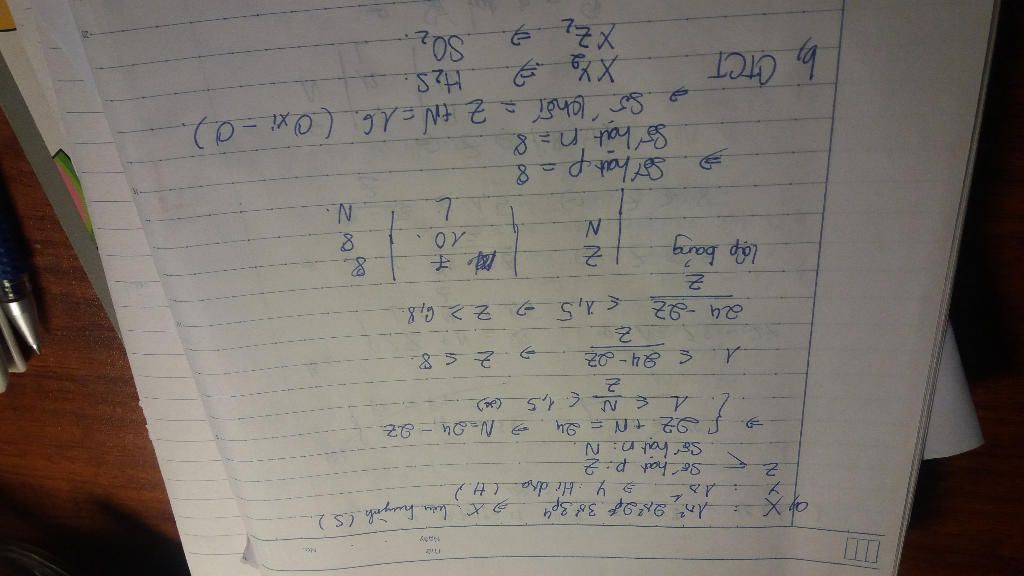 Thứ
Ngày
No.
a, X : 1s² 2s² 2p⁶ 3s² 3p⁴ ⇒ X lưu huỳnh (S)
Y : 1s¹ ⇒ Y : Hidro (H)
Z < Số hạt p : Z
Số hạt n : N
⇒ { 2Z + N = 24 ⇒ N = 24 - 2Z
{ 1 ≤ N/Z ≤ 1,5 (*)
1 ≤ (24 - 2Z)/Z ⇒ Z ≤ 8
(24 - 2Z)/Z ≤ 1,5 ⇒ Z > 6,8
lập bảng
Z | 7 | 8
N | 10. | 8
L | N.
⇒ Số hạt p = 8
Số hạt n = 8
⇒ Số khối = Z + N = 16 (Oxi - O)
b, CTCT XY₂ ⇒ H₂S.
XZ₂ ⇒ SO₂.